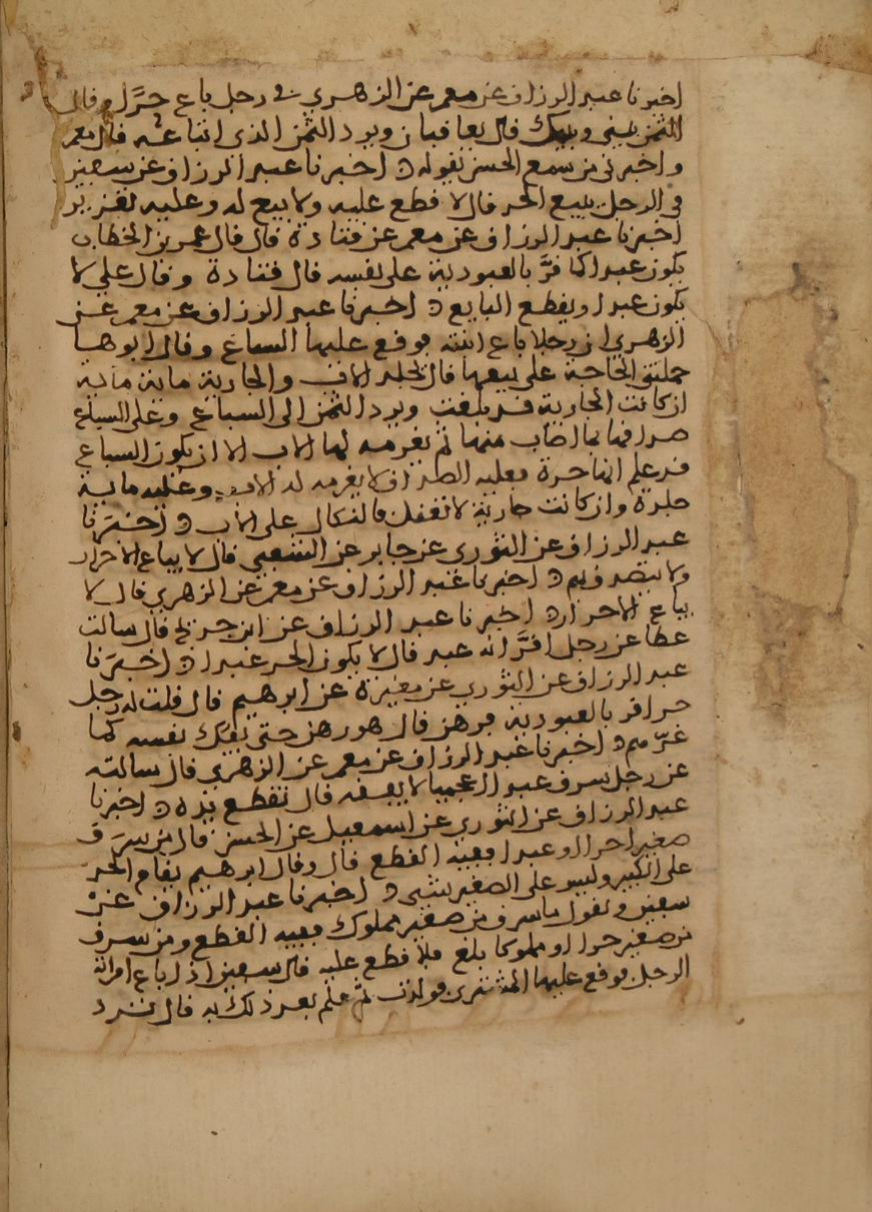 اخبرنا عبد الرزاق عن معمر عن الزهري في رجل باع حرا وقال
الثمن بيني وبينك قال يعاقبان ويرد الثمن الذي ابتاعه قال معمر
واخبرني من سمع الحسن يقوله اخبرنا عبد الرزاق عن سفين
في الرجل يبيع الحر قال لا قطع عليه ولا بيع له وعليه تعزير
اخبرنا عبد الرزاق عن معمر عن قتادة قال قال عمر بن الخطاب
يكون عبدا كما اقر بالعبودية على نفسه قال قتادة وقال علي لا
يكون عبدا ويقطع البايع اخبرنا عبد الرزاق عن معمر عن
الزهري ان رجلا باع ابنته فوقع عليها المبتاع وقال ابوها
حملتني الحاجة على بيعها قال يجلد الاب والجارية ماية ماية
ان كانت الجارية قد بلغت ويرد الثمن الى المبتاع وعلى المبتاع
صداقها بما اصاب منها ثم يغرمه لها الاب الا ان يكون المبتاع
قد علم انها حرة فعليه الصداق لا يغرمه له الاب وعليه ماية
جلدة وان كانت جارية لا تعقل فالنكال على الاب اخبرنا
عبد الرزاق عن الثوري عن جابر عن الشعبي قال لا يباع الاحرار
ولا يتصدق بهم اخبرنا عبد الرزاق عن معمر عن الزهري قال لا
يباع الاحرار اخبرنا عبد الرزاق عن ابن جريج قال سالت
عطا عن رجل اقر انه عبد قال لا يكون الحر عبدا اخبرنا
عبد الرزاق عن الثوري عن مغيرة عن ابرهيم قال قلت له رجل
حر اقر بالعبودية فرهن قال هو رهن حتى يفك نفسه كما
غرهم اخبرنا عبد الرزاق عن معمر عن الزهري قال سالته
عن رجل سرق عبدا اعجميا لا يفقه قال تقطع يده اخبرنا
عبد الرزاق عن الثوري عن اسمعيل عن الحسن قال من سرق
صغيرا حرا او عبدا ففيه القطع قال وقال ابرهيم يقام الحد
على الكبير وليس على الصغير شي اخبرنا عبد الرزاق عن
سفين ونقول ما سرق من صغير مملوك ففيه القطع ومن سرق
من صغير حرا او مملوكا بلغ فلا قطع عليه قال سفين اذا باع امراته
الرجل فوقع عليها المشتري فولدت ثم علم بعد ذلك به قال ترد